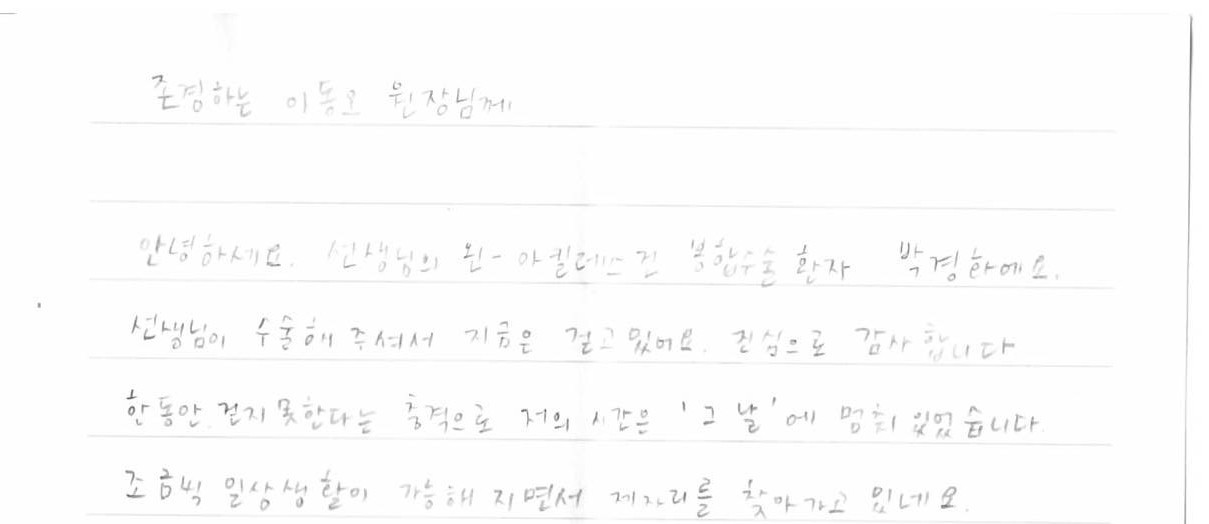 존경하는 이동오 원장님께
안녕하세요. 선생님의 왼-아킬레스건 봉합수술 환자 박경하에요.
선생님이 수술해 주셔서 지금은 걷고있어요. 진심으로 감사합니다
한동안 걷지 못한다는 충격으로 저의 시간은 '그 날'에 멈춰 있었습니다.
조금씩 일상생활이 가능해 지면서 제자리를 찾아가고 있네요.